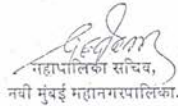 महापालिका सचिव,
नवी मुंबई महानगरपालिका.